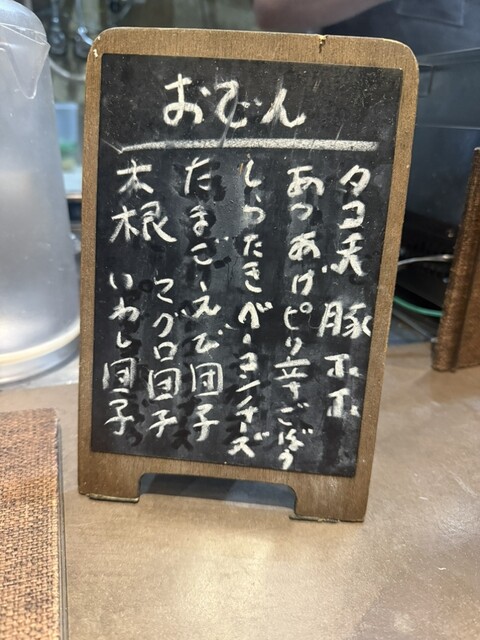 おでん
タコ天 豚ホホ
あつあげ ピリ辛ごぼう
しらたき ベーコンチーズ
たまご えび団子
大根 マグロ団子
いわし団子